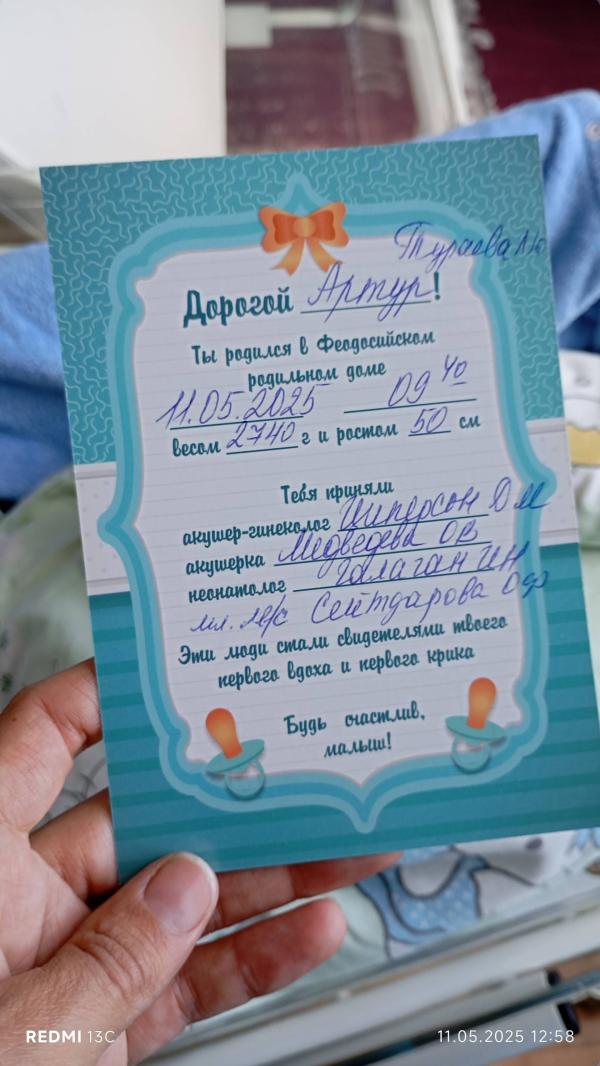 Тураева Л Ю
Дорогой Артур!
Ты родился в Феодосийском
родильном доме
11.05.2025 09 40
весом 2740 г и ростом 50 см
Тебя приняли
акушер-гинеколог Циперсон Д М
акушерка Медведева ОВ
неонатолог Галаган ИН
мл. м/с Сейтдарова
Эти люди стали свидетелями твоего
первого вдоха и первого крика
Будь счастлив,
малыш!
REDMI 13C 11.05.2025 12:58